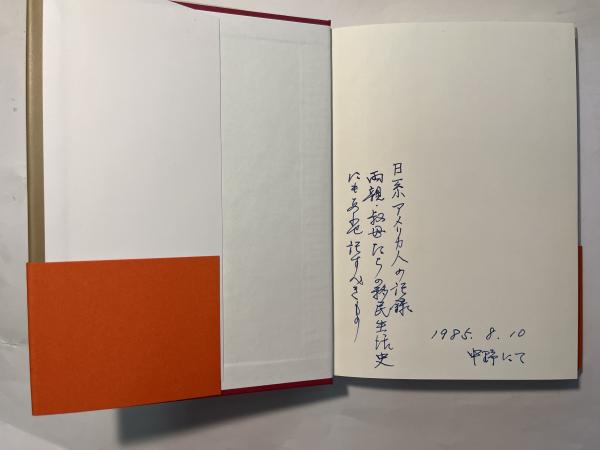 日系アメリカ人の記録
両親・叔母たちの移民生活史
にも 記すべきもの
1985. 8. 10
中野にて